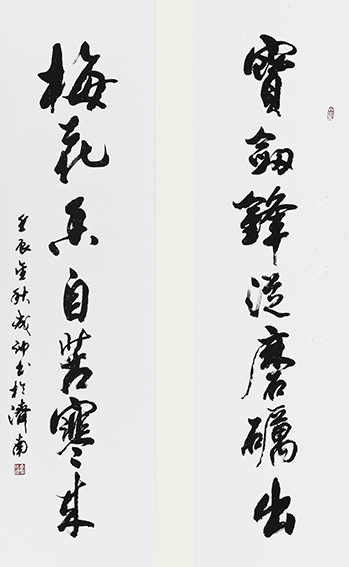 寶劍鋒從磨礪出
梅花香自苦寒来
壬辰金秋成師書於濟南